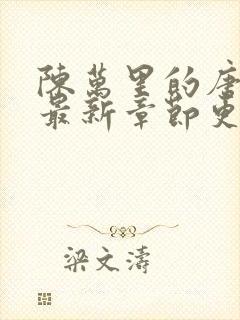 陳萬里的唐
最新章節更
梁文濤